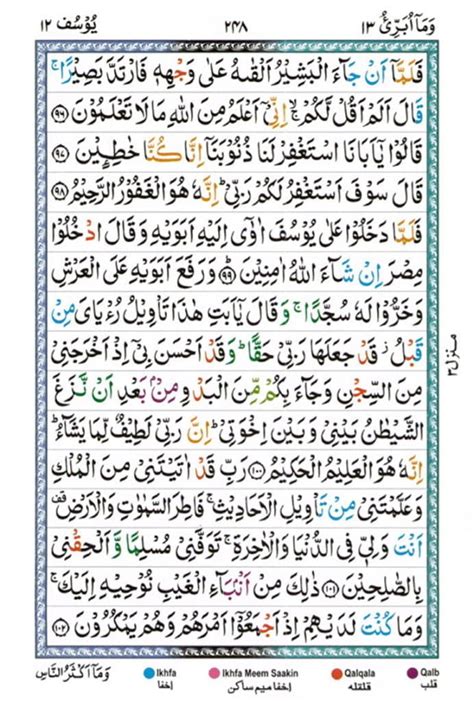 وَمَاۤ اُبَرِّئُ ١٣ ٢٤٨ يُوْسُف ١٢
فَلَمَّاۤ اَنْ جَآءَ الْبَشِيْرُ اَلْقٰىهُ عَلٰى وَجْهِهٖ فَارْتَدَّ بَصِيْرًا ۚ
قَالَ اَلَمْ اَقُلْ لَّكُمْ ۚۙ اِنِّيْۤ اَعْلَمُ مِنَ اللّٰهِ مَا لَا تَعْلَمُوْنَ ﴿٩٦﴾
قَالُوْا يٰۤاَبَانَا اسْتَغْفِرْ لَنَا ذُنُوْبَنَاۤ اِنَّا كُنَّا خٰطِـِٕيْنَ ﴿٩٧﴾
قَالَ سَوْفَ اَسْتَغْفِرُ لَكُمْ رَبِّيْ ؕ اِنَّهٗ هُوَ الْغَفُوْرُ الرَّحِيْمُ ﴿٩٨﴾
فَلَمَّا دَخَلُوْا عَلٰى يُوْسُفَ اٰوٰۤى اِلَيْهِ اَبَوَيْهِ وَقَالَ ادْخُلُوْا
مِصْرَ اِنْ شَآءَ اللّٰهُ اٰمِنِيْنَ ﴿٩٩﴾ وَرَفَعَ اَبَوَيْهِ عَلَى الْعَرْشِ
وَخَرُّوْا لَهٗ سُجَّدًا ۚ وَقَالَ يٰۤاَبَتِ هٰذَا تَاْوِيْلُ رُءْيَايَ مِنْ
قَبْلُ ؗ قَدْ جَعَلَهَا رَبِّيْ حَقًّا ؕ وَقَدْ اَحْسَنَ بِيْۤ اِذْ اَخْرَجَنِيْ
مِنَ السِّجْنِ وَجَآءَ بِكُمْ مِّنَ الْبَدْوِ مِنْۢ بَعْدِ اَنْ نَّزَغَ
الشَّيْطٰنُ بَيْنِيْ وَبَيْنَ اِخْوَتِيْ ؕ اِنَّ رَبِّيْ لَطِيْفٌ لِّمَا يَشَآءُ ؕ
اِنَّهٗ هُوَ الْعَلِيْمُ الْحَكِيْمُ ﴿١٠٠﴾ رَبِّ قَدْ اٰتَيْتَنِيْ مِنَ الْمُلْكِ
وَعَلَّمْتَنِيْ مِنْ تَاْوِيْلِ الْاَحَادِيْثِ ۚ فَاطِرَ السَّمٰوٰتِ وَالْاَرْضِ ۟
اَنْتَ وَلِيّٖ فِي الدُّنْيَا وَالْاٰخِرَةِ ۚ تَوَفَّنِيْ مُسْلِمًا وَّاَلْحِقْنِيْ
بِالصّٰلِحِيْنَ ﴿١٠١﴾ ذٰلِكَ مِنْ اَنْۢبَآءِ الْغَيْبِ نُوْحِيْهِ اِلَيْكَ ۚ
وَمَا كُنْتَ لَدَيْهِمْ اِذْ اَجْمَعُوْۤا اَمْرَهُمْ وَهُمْ يَمْكُرُوْنَ ﴿١٠٢﴾
منزل ٣
وَمَاۤ اَكْثَرُ النَّاسِ
Ikhfa Ikhfa Meem Saakin Qalqala Qalb
اخفا اخفا میم ساکن قلقله قلب